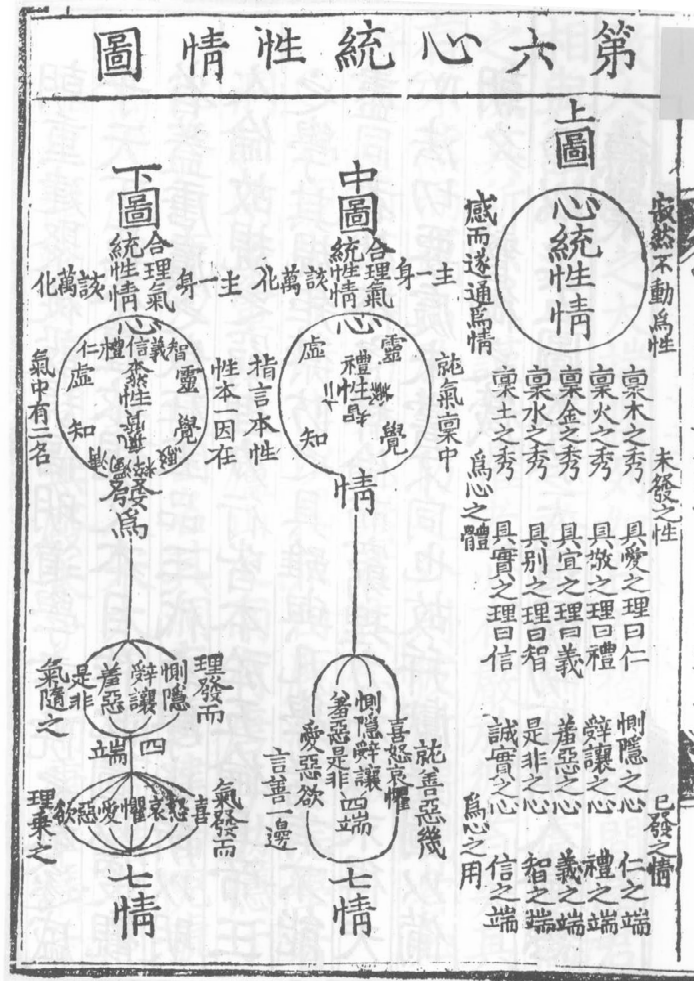 第六心統性情圖
上圖
心統性情
寂然不動爲性
感而遂通爲情
未發之性
爲心之體
稟木之秀 具愛之理曰仁
稟火之秀 具敬之理曰禮
稟金之秀 具宜之理曰義
稟水之秀 具別之理曰智
稟土之秀 具實之理曰信
已發之情
爲心之用
惻隱之心 仁之端
辭讓之心 禮之端
羞惡之心 義之端
是非之心 智之端
誠實之心 信之端
中圖
合理氣
統性情
主一身
該萬化
心
虛靈
知覺
仁義禮智
性
就氣稟中
指言本性
情
惻隱辭讓
羞惡是非
四端
喜怒哀懼
愛惡欲
就善惡幾
言善一邊
七情
下圖
合理氣
統性情
主一身
該萬化
心
虛靈
知覺
智義信禮仁
本性氣質
清濁粹駁
性本一因在
氣中有二名
發爲
理發而
氣隨之
惻隱
辭讓
羞惡
是非
四端
氣發而
理乘之
喜怒哀懼愛惡欲
七情